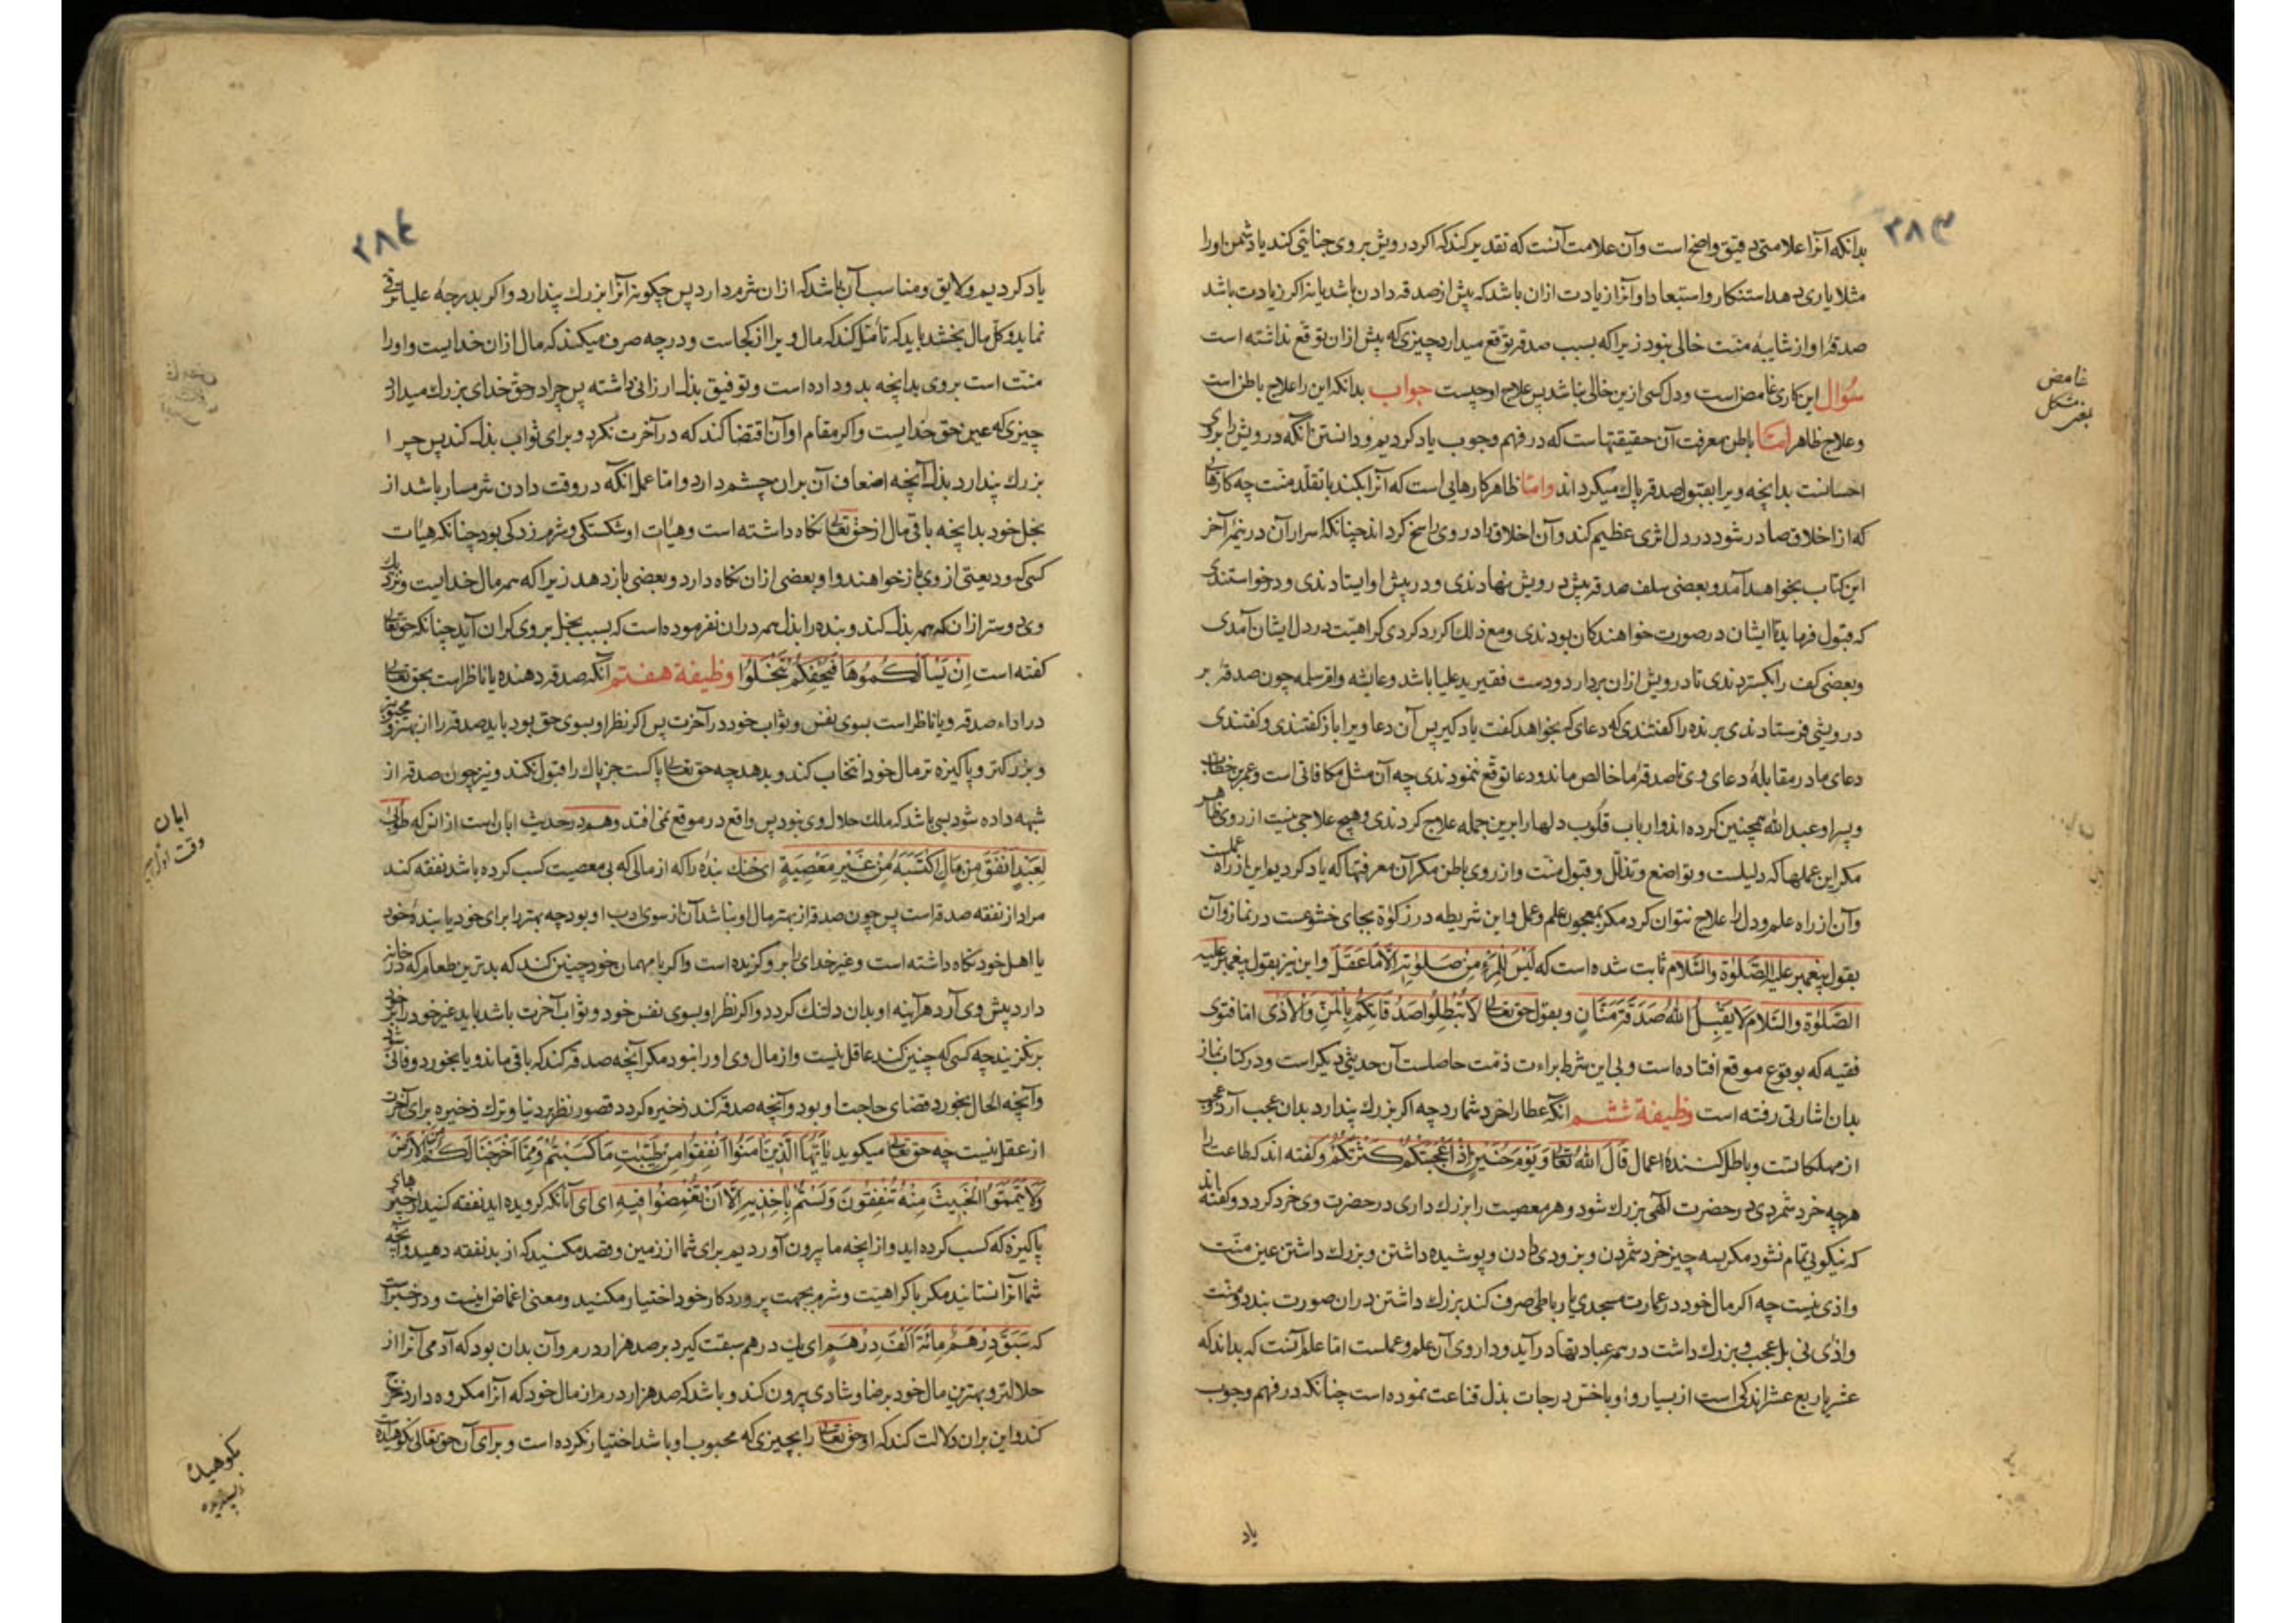 ۳۸۳
بدانکه آنرا علامتی دقیق واضح است وآن علامت آنست که تقدیر کند که اکر درویش بر وی جنایتی کند یا دشمن او را
مثلا یاری دهد استنکار واستبعاد او آنرا زیادت ازان باشد که پیش از صدقه دادن باشد یا نه اکر زیادت باشد
صدقۀ او از شایبۀ منت خالی نبود زیرا که بسبب صدقه توقع میدارد چیزی که پیش ازان توقع نداشته است
سؤال این کاری غامض است ودل کسی ازین خالی نباشد پس علاج او چیست جواب بدانکه این را علاج باطن است
وعلاج ظاهر امّا باطن معرفت آن حقیقتهاست که در فهم وجوب یاد کردیم ودانستن آنکه درویش را بر وی
احسانست بدانچه ویرا بقبول صدقه پاک میکرداند وامّا ظاهر کارهایی است که آنرا بکند با تقلد منت چه کارهایی
که از اخلاق صادر شود در دل اثری عظیم کند وآن اخلاق را در وی راسخ کرداند چنانکه اسرار آن در نیمۀ آخر
این کتاب بخواهد آمد وبعضی سلف صدقه پیش درویش نهادندی ودر پیش او ایستادندی ودرخواستندی
که قبول فرماید تا ایشان در صورت خواهندکان بودندی ومع ذلک اکر رد کردی کراهیت در دل ایشان آمدی
وبعضی کف را بکستردندی تا درویش ازان بردارد ودست فقیر ید علیا باشد وعایشه وام سلمه چون صدقه بر
درویشی فرستادندی برنده را کفتندی که دعای که بخواهد کفت یاد کیر پس آن دعا ویرا باز کفتندی وکفتندی
دعای ما در مقابلۀ دعای وی تا صدقۀ ما خالص ماند ودعا توقع ننمودندی چه آن مثل مکافاتی است وعمر بن خطاب
وپسر او عبد الله همچنین کرده اند وارباب قلوب دلها را برین جمله علاج کردندی وهیچ علاجی نیست از روی ظاهر
مکر این عملها که دلیلست وتواضع وتذلّل وقبول منت واز روی باطن مکر آن معرفتها که یاد کردیم این از راه عملست
وآن از راه علم ودل را علاج نتوان کرد مکر بمعجون علم وعمل واین شریطه در زکوٰة بجای خشوعست در نماز وآن
بقول پیغمبر علیه الصّلوٰة والسّلام ثابت شده است که لَیْسَ لِلْمَرْءِ مِنْ صَلَوٰتِهِ اِلَّا مَا عَقَلَ واین نیز بقول پیغمبر علیه
الصّلوٰة والسّلام لَا یَقْبَلُ اللهُ صَدَقَةَ مَنَّانٍ وبقول حق تعالی لَا تُبْطِلُوا صَدَقَاتِکُمْ بِالْمَنِّ وَالْاَذٰی امّا فتوی
فقیه که بوقوع موقع افتاده است وبی این شرط براءت ذمت حاصلست آن حدیثی دیکر است ودر کتاب نماز
بدان اشارتی رفته است وظیفة ششم آنکه عطا را خرد شمارد چه اکر بزرک پندارد بدان عجب آرد وعجب
از مهلکاتست وباطل کنندۀ اعمال قَالَ اللهُ تَعَالی وَیَوْمَ حُنَیْنٍ اِذْ اَعْجَبَتْکُمْ کَثْرَتُکُمْ وکفته اند که طاعت را
هرچه خرد شمردی در حضرت الٰهی بزرک شود وهر معصیت را بزرک داری در حضرت وی خرد کردد وکفته اند
که نیکویی تمام نشود مکر بسه چیز خرد شمردن وبزودی دادن وپوشیده داشتن وبزرک داشتن عین منّت
واذی نیست چه اکر مال خود در عمارت مسجدی یا رباطی صرف کند بزرک داشتن دران صورت بندد ومنّت
واذی نی بل عجب وبزرک داشت در همه عبادتها در آید وداروی آن علم وعملست امّا علم آنست که بداند که
عشر یا ربع عشر اندکی است از بسیار واو باخسّ درجات بذل قناعت نموده است چنانکه در فهم وجوب
یاد
غامض
بغیر مشکل
۳۸٤
یاد کردیم ولایق ومناسب آن باشد که ازان شرم دارد پس چکونه آنرا بزرک پندارد واکر بدرجۀ علیا ترقی
نماید وکلّ مال بخشد باید که تأمّل کند که مال ویرا از کجاست ودر چه صرف میکند که مال ازان خدایست واو را
منّت است بر وی بدانچه بدو داده است وتوفیق بذل ارزانی داشته پس چرا در حق خدای بزرک میدانی
چیزی که عین حق خدایست واکر مقام او آن اقتضا کند که در آخرت نکرد وبرای ثواب بذل کند پس چرا
بزرک پندارد بذل آنچه اضعاف آن بران چشم دارد وامّا عمل آنکه در وقت دادن شرمسار باشد از
بخل خود بدانچه باقی مال از حق تعالی نکاه داشته است وهیأت او شکستکی وشرم زدکی بود چنانکه هیأت
کسی که ودیعتی از وی باز خواهند واو بعضی ازان نکاه دارد وبعضی باز دهد زیرا که همه مال خدایست ونزدیک
وی دوستر ازان که همه بذل کند وبنده را بذل همه دران نفرموده است که بسبب بخل بر وی کران آید چنانکه حق تعالی
کفته است اِنْ یَسْاَلْکُمُوهَا فَیُحْفِکُمْ تَبْخَلُوا وظیفة هفتم آنکه صدقه دهنده یا ناظر است بحق تعالی
در اداء صدقه ویا ناظر است بسوی نفس وثواب خود در آخرت پس اکر نظر او بسوی حق بود باید صدقه را از بهترین ومحبوبتر
وبزرکتر وپاکیزه تر مال خود انتخاب کند وبدهد چه حق تعالی پاکست جز پاک را قبول نکند ونیز چون صدقه از
شبهه داده شود بسی باشد که ملک حلال وی نبود پس واقع در موقع نمی افتد وهم در حدیث ابان است از انس که طُوبٰی
لِعَبْدٍ اَنْفَقَ مِنْ مَالٍ اکْتَسَبَهُ مِنْ غَیْرِ مَعْصِیَةٍ ای خنک بنده را که از مالی که بی معصیت کسب کرده باشد نفقه کند
مراد از نفقه صدقه است پس چون صدقه از بهتر مال او نباشد آن از سوی ادب او بود چه بهتر را برای خود یا بندۀ خود
یا اهل خود نکاه داشته است وغیر خدای را برو کزیده است واکر با مهمان خود چنین کند که بدترین طعام که در خانه
دارد پیش وی آرد هرآینه او بدان دلتنک کردد واکر نظر او بسوی نفس خود وثواب آخرت باشد باید غیر خود را بر خود
بر نکزیند چه کسی که چنین کند عاقل نیست واز مال وی او را نبود مکر آنچه صدقه کند که باقی ماند ویا بخورد وفانی شود
وآنچه الحال بخورد قضای حاجت او بود وآنچه صدقه کند ذخیره کردد قصور نظر بر دنیا وترک ذخیره برای آخرت
از عقل نیست چه حق تعالی میکوید یَا اَیُّهَا الَّذِینَ اٰمَنُوا اَنْفِقُوا مِنْ طَیِّبَاتِ مَا کَسَبْتُمْ وَمِمَّا اَخْرَجْنَا لَکُمْ مِنَ الْاَرْضِ
وَلَا تَیَمَّمُوا الْخَبِیثَ مِنْهُ تُنْفِقُونَ وَلَسْتُمْ بِاٰخِذِیهِ اِلَّا اَنْ تُغْمِضُوا فِیهِ ای ای آنانکه کرویده اید نفقه کنید از چیزهای
پاکیزه که کسب کرده اید واز آنچه ما بیرون آوردیم برای شما از زمین وقصد مکنید که از بد نفقه دهید وآنچه
شما آنرا نستانید مکر با کراهیت وشرم بجهت پروردکار خود اختیار مکنید ومعنی اغماض اینست ودر خبر است
که سَبَقَ دِرْهَمٌ مِائَةَ اَلْفَ دِرْهَمٍ ای یک درهم سبقت کیرد بر صد هزار درم وآن بدان بود که آدمی آنرا از
حلالتر وبهترین مال خود برضا وشادی بیرون کند وباشد که صد هزار درم از مال خود که آنرا مکروه دارد خرج
کند واین بران دلالت کند که او حق تعالی را بچیزی که محبوب او باشد اختیار نکرده است وبرای آن حق تعالی نکوهیده
ابان
نکوهیده